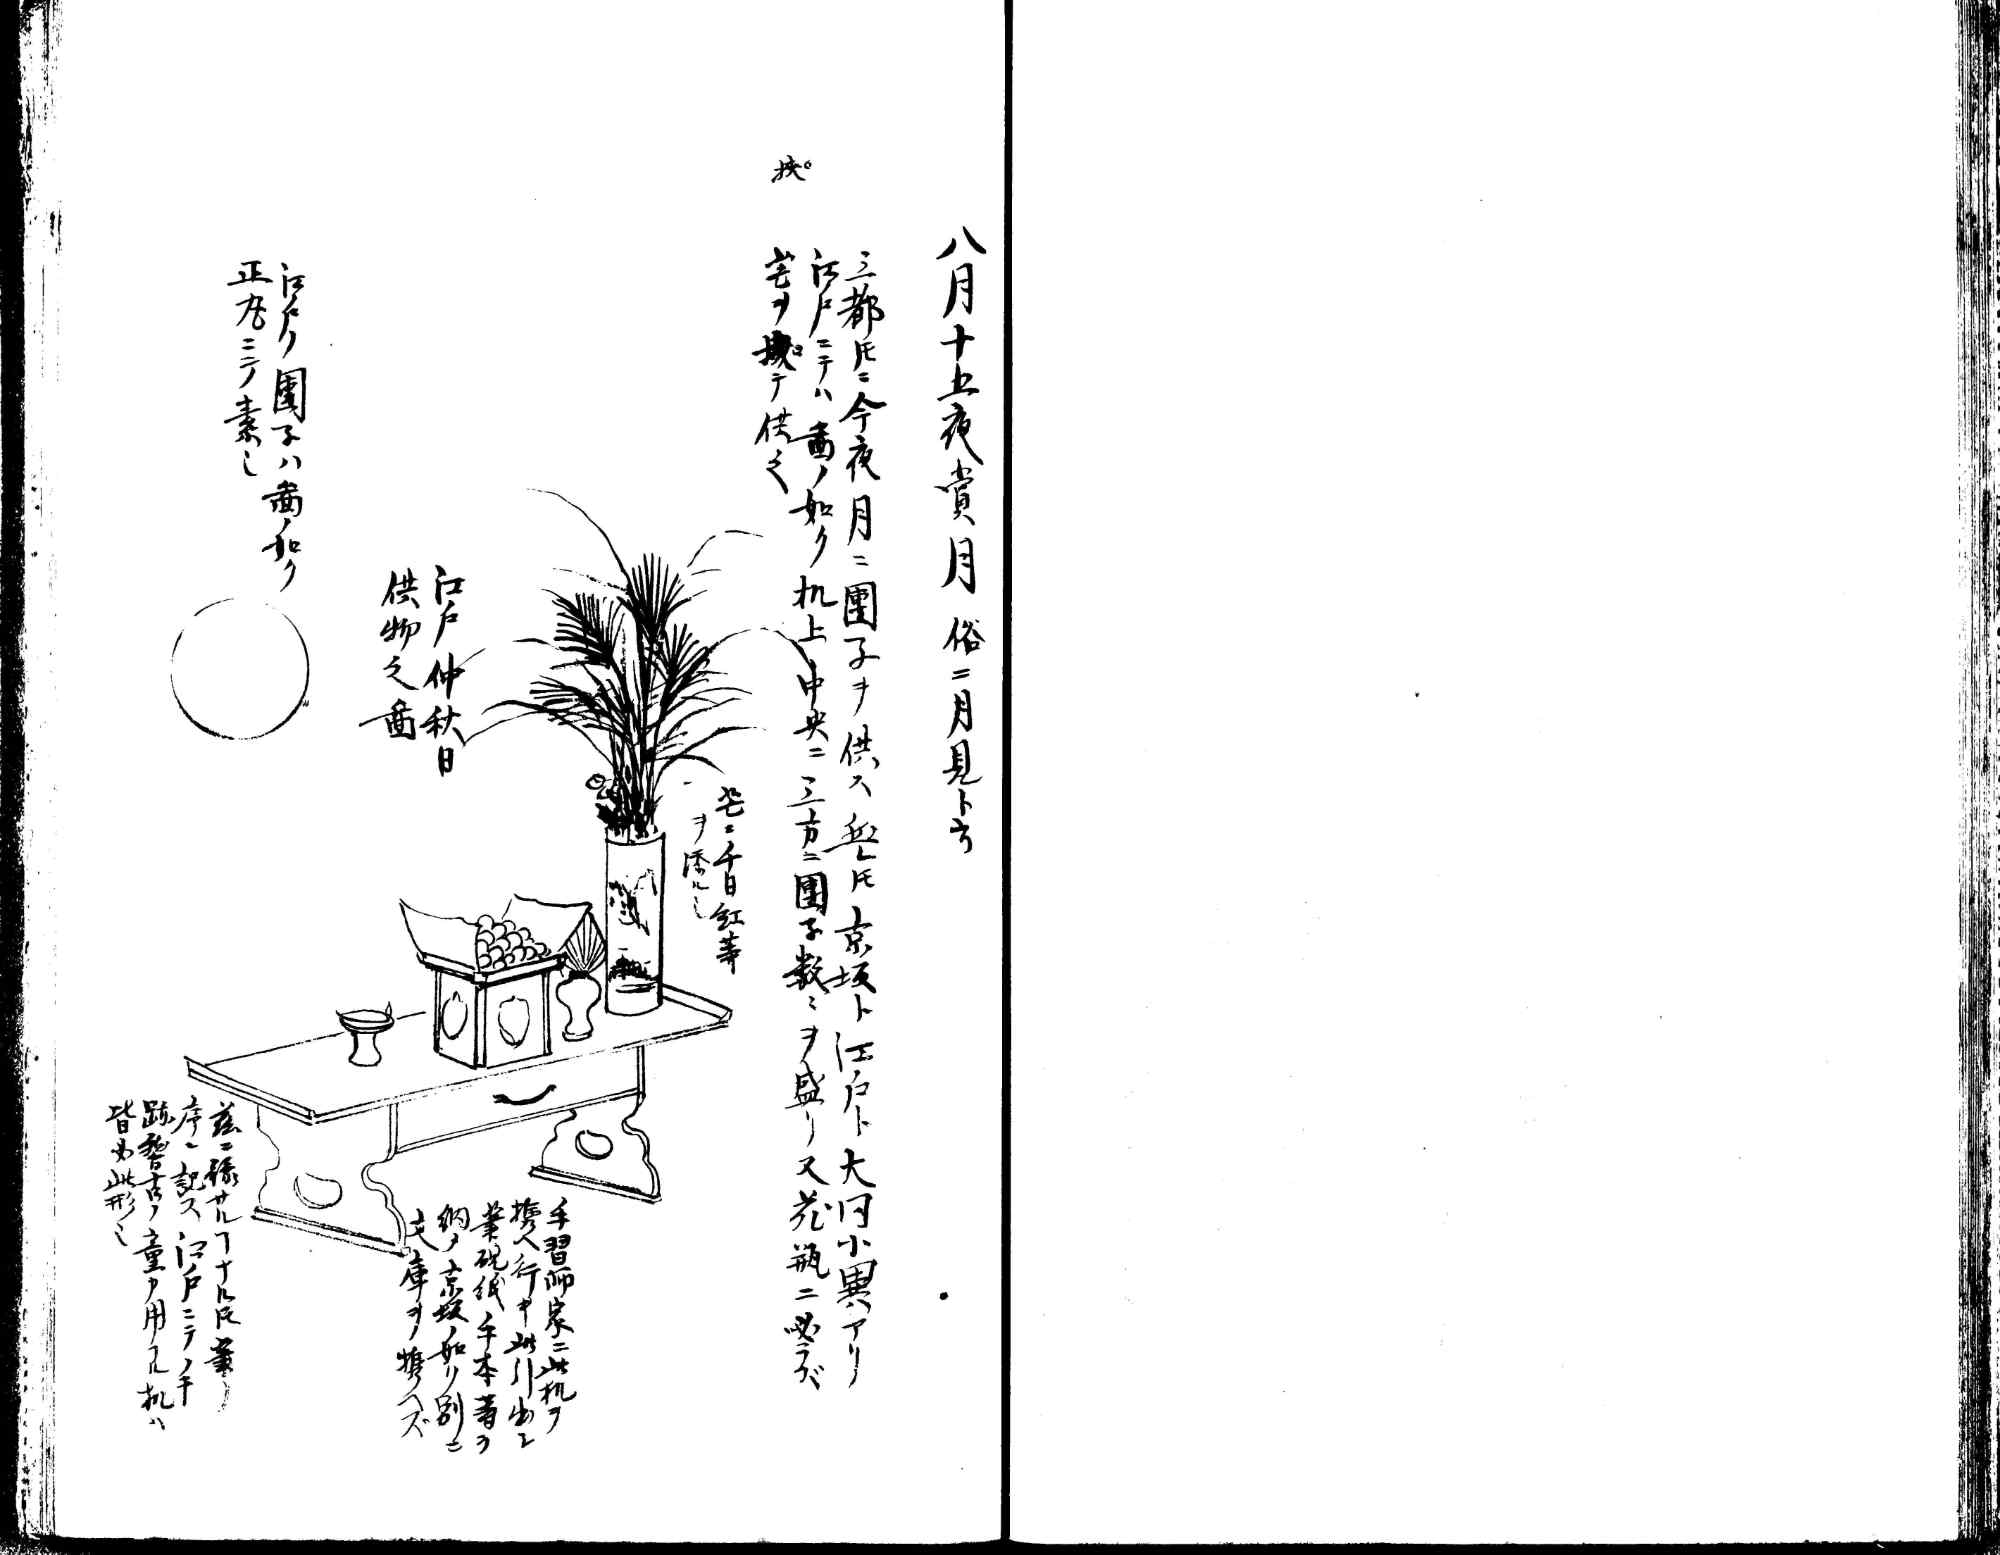 八月十五夜賞月 俗ニ月見ト云
三都トモニ今夜月ニ團子ヲ供ス然レトモ京坂ト江戸ト大同小異アリ
江戸ニテハ圖ノ如ク机上中央ニ三方ニ團子数〻ヲ盛リ又花瓶ニ必ラズ
挾
芒ヲ挾テ供之
芒ニ千日紅等
ヲ添ル也
江戸仲秋日
供物之圖
江戸ノ團子ハ圖ノ如ク
正丸ニテ素也
手習師家ニ此机ヲ
携ヘ行キ此引出シ
筆硯紙手本等ヲ
納メ京坂ノ如ク別ニ
文庫ヲ携ヘズ
茲ニ録サルヿナルトモ筆ノ
序ニ記ス江戸ニテノ手
跡稽古ノ童ノ用フル机ハ
皆如此形也